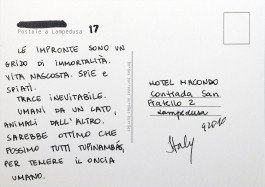 Postale a Lampedusa 17
LE IMPRONTE SONO UN
GRIDO DI IMMORTALITÀ.
VITA NASCOSTA. SPIE E
SPIATI.
TRACE INEVITABILE.
UMANI DA UN LATO,
ANIMALI DALL'ALTRO.
SAREBBE OTTIMO CHE
FOSSIMO TUTTI TUPINAMBÁS,
PER TEMERE IL ONCIA
UMANO.
HOTEL MACONDO
Contrada San
Fratello 2
Lampedusa
Italy
92010